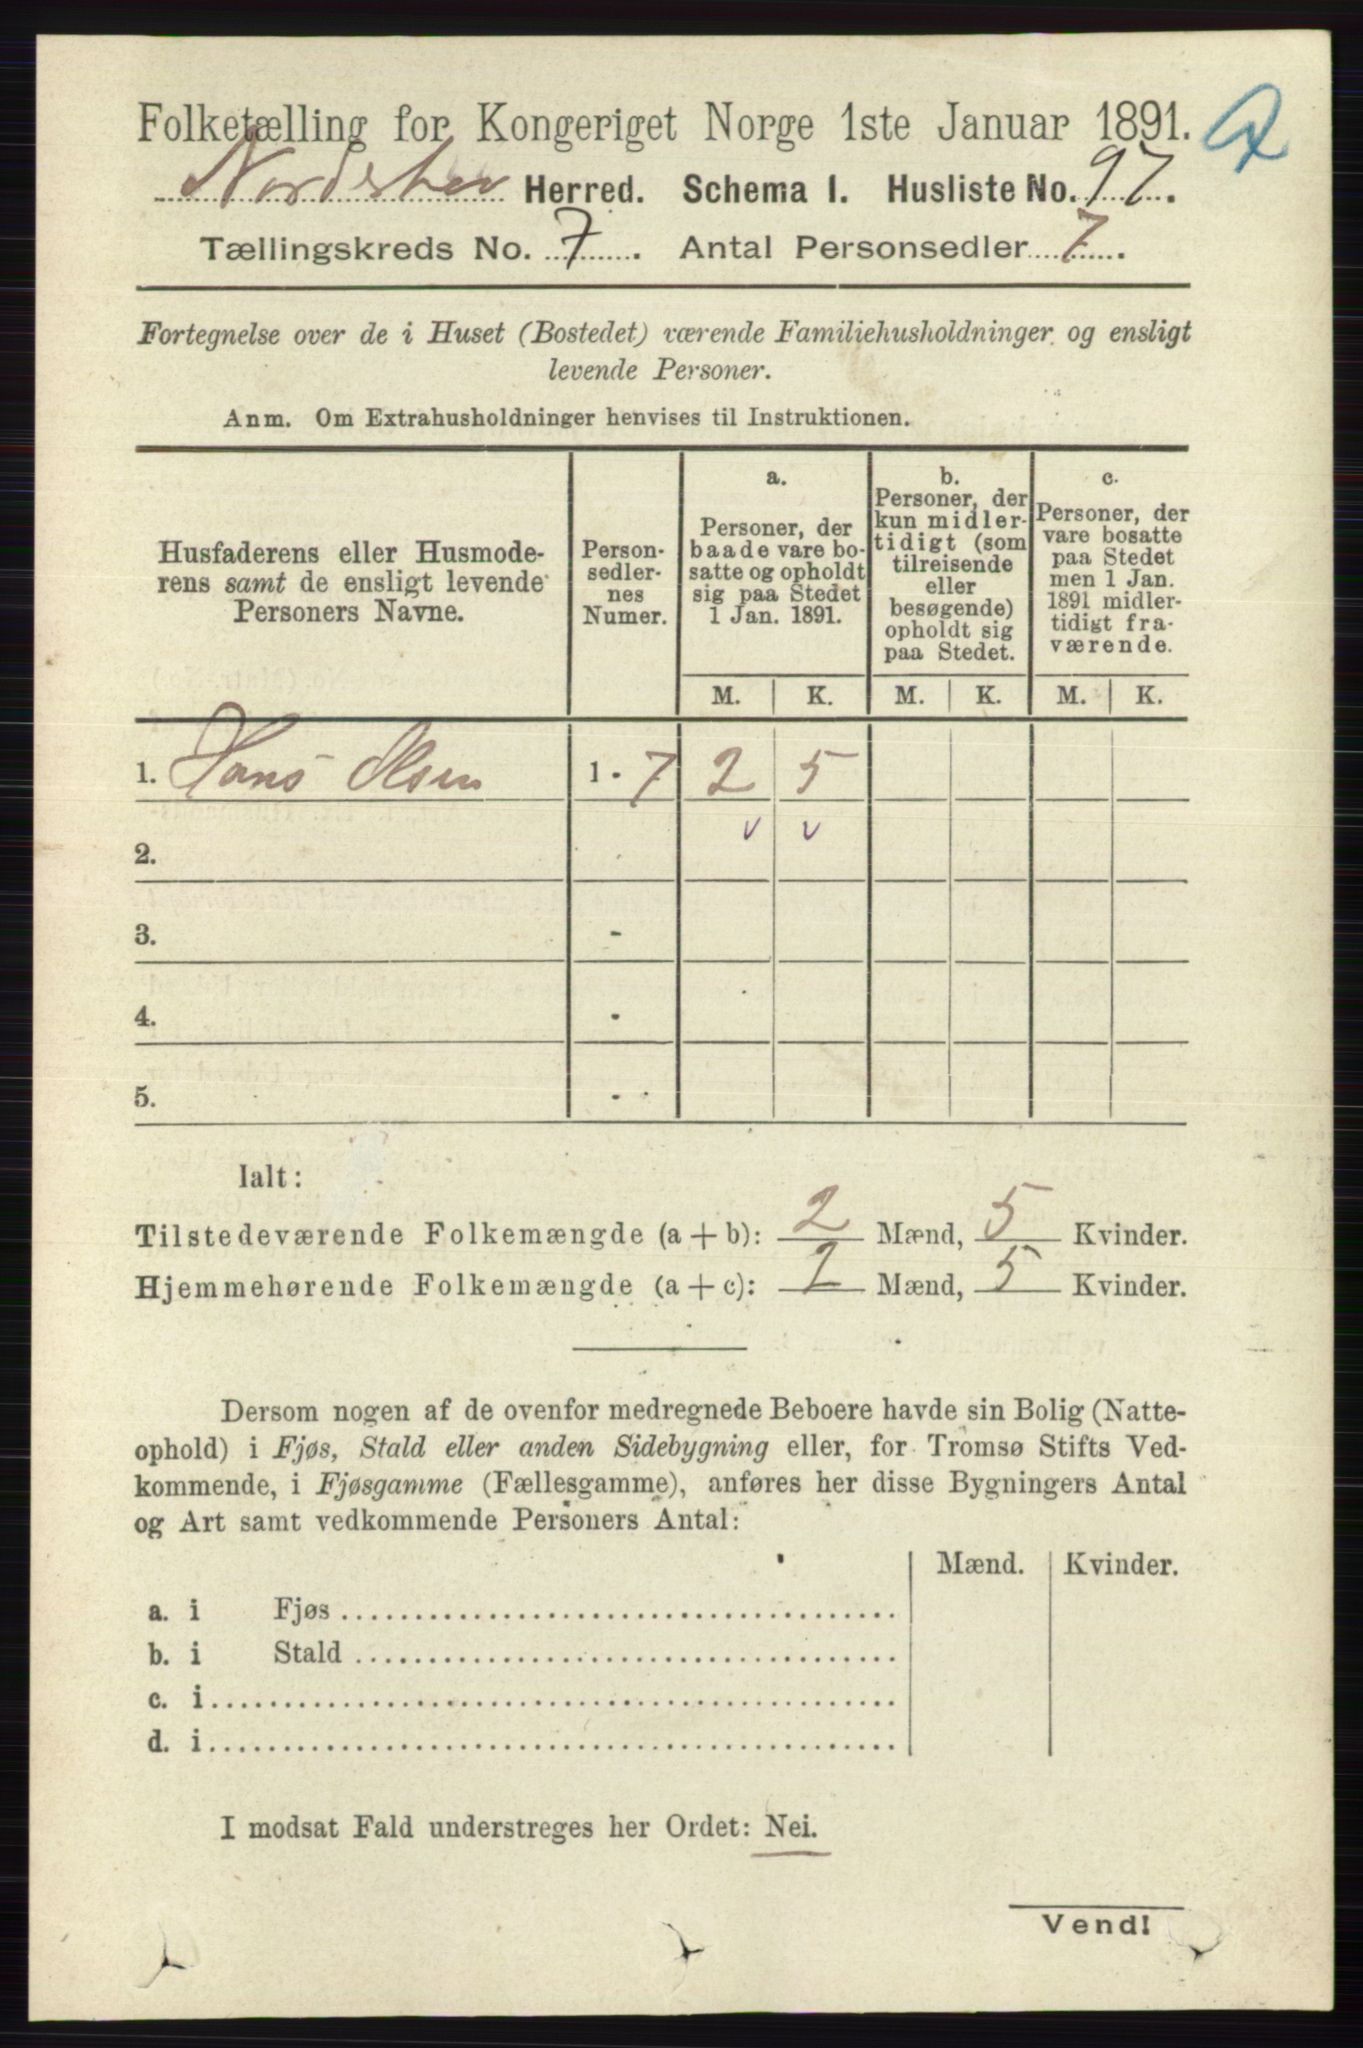 Folketælling for Kongeriget Norge 1ste Januar 1891.
Herred. Schema 1. Husliste No. 97.
Tællingskreds No. 7. Antal Personsedler 7.
Fortegnelse over de i Huset (Bostedet) værende Familiehusholdninger og ensligt
levende Personer.
Anm. Om Extrahusholdninger henvises til Instruktionen.
Husfaderens eller Husmode-
rens samt de ensligt levende
Personers Navne.
Person-
sedler-
nes
Numer.
a.
Personer, der
baade vare bo-
satte og opholdt
sig paa Stedet
1 Jan. 1891.
b.
Personer, der
kun midler-
tidigt (som
tilreisende
eller
besøgende)
opholdt sig
paa Stedet.
c.
Personer, der
vare bosatte
paa Stedet
men 1 Jan.
1891 midler-
tidigt fra-
værende.
M. K. M. K. M. K.
1. Hans Olsen 1 - 7 2 5
v v
2.
3. -
4. -
5. -
Ialt:
Tilstedeværende Folkemængde (a + b): 2 Mænd, 5 Kvinder.
Hjemmehørende Folkemængde (a + c): 2 Mænd, 5 Kvinder.
Dersom nogen af de ovenfor medregnede Beboere havde sin Bolig (Natte-
ophold) i Fjøs, Stald eller anden Sidebygning eller, for Tromsø Stifts Ved-
kommende, i Fjøsgamme (Fællesgamme), anføres her disse Bygningers Antal
og Art samt vedkommende Personers Antal:
Mænd. Kvinder.
a. i Fjøs
b. i Stald
c. i
d. i
I modsat Fald understreges her Ordet: Nei.
Vend!